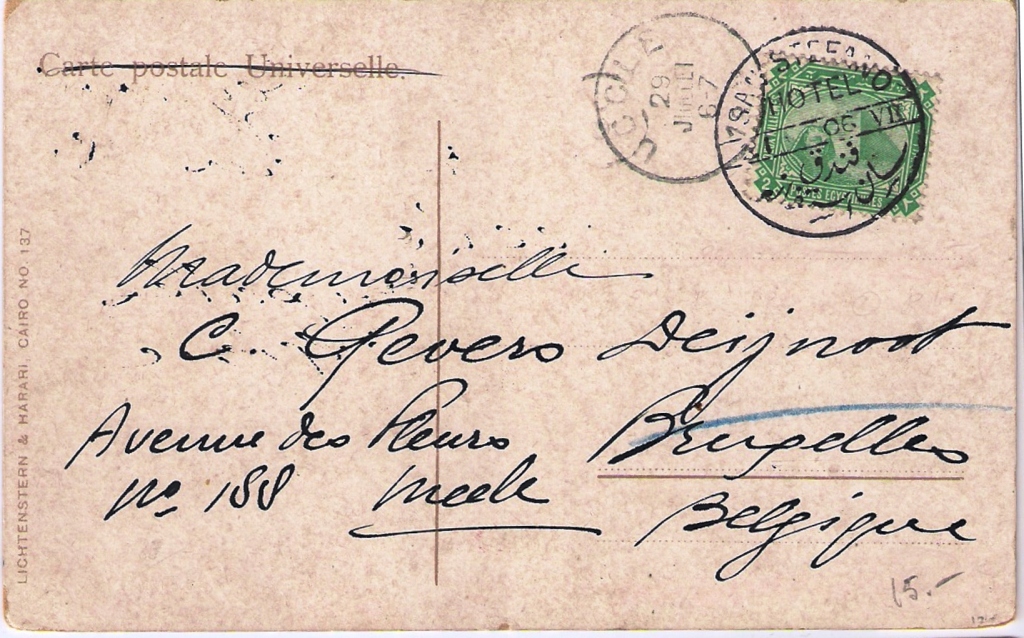 Carte postale Universelle.
UCCLE
29
JUIL
6-7
SAN STEFANO
HOTEL
06 VII
فندق
POSTES EGYPTIENNES
2
Mademoiselle
C. Gevers Deijnoot
Avenue des Fleurs Bruxelles
No. 188 Belgique
15.-
LICHTENSTERN & HARARI, CAIRO NO. 137